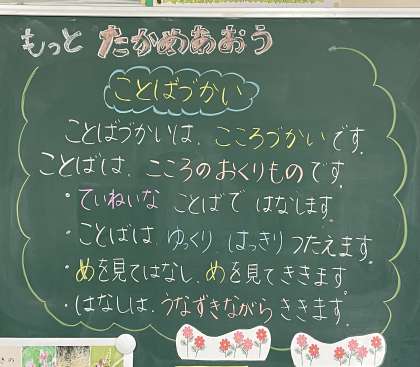 もっと たかめあおう
ことばづかい
ことばづかいは、こころづかいです。
ことばは、こころのおくりものです。
・ていねいな ことばで はなします。
・ことばは、ゆっくり、はっきりつたえます。
・めを見てはなし、めを見てききます。
・はなしは、うなずきながら ききます。